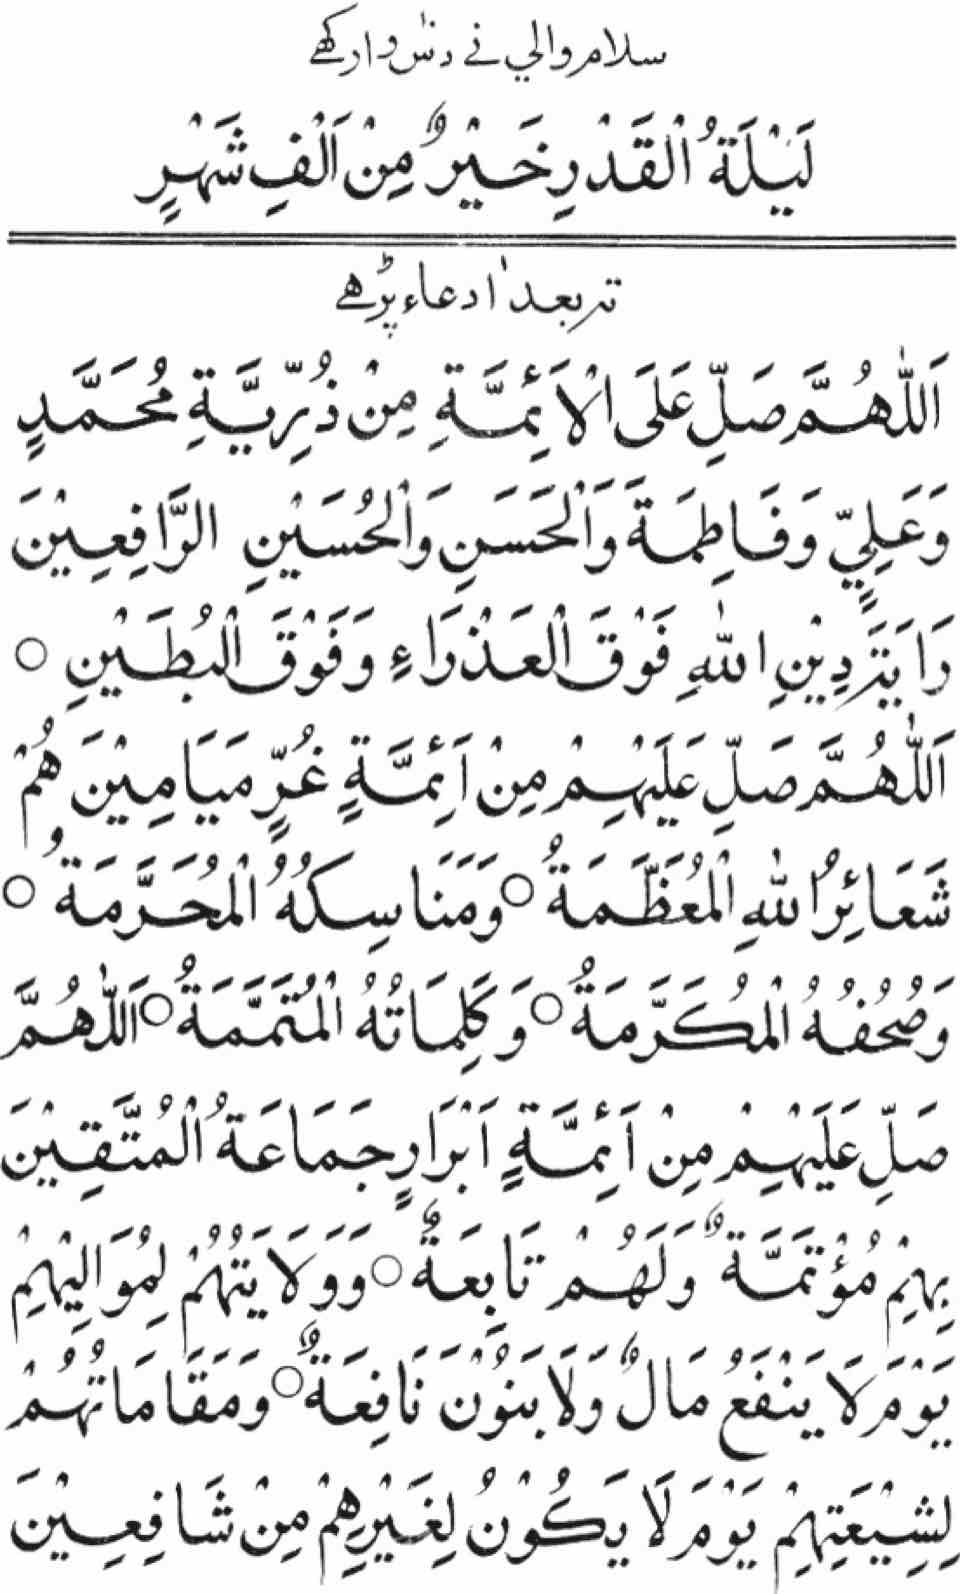 سلام والي نے دس وار كهے
لَيْلَةُ الْقَدْرِ خَيْرٌ مِنْ اَلْفِ شَهْرٍ
تہ بعد ا دعاء پڑهے
اَللّٰهُمَّ صَلِّ عَلَى الْاَئِمَّةِ مِنْ ذُرِّيَّةِ مُحَمَّدٍ
وَعَلِيٍّ وَفَاطِمَةَ وَالْحَسَنِ وَالْحُسَيْنِ الرَّافِعِيْنَ
رَايَتَرِدِيْنِ اللهِ فَوْقَ الْعَذْرَاءِ وَفَوْقَ الْبُطَيْنِ ○
اَللّٰهُمَّ صَلِّ عَلَيْهِمْ مِنْ اَئِمَّةٍ غُرٍّ مَيَامِيْنَ هُمْ
شَعَائِرُ اللهِ الْمُعَظَّمَةُ ○ وَمَنَاسِكُهُ الْمُحَرَّمَةُ ○
وَصُحُفُهُ الْمُكَرَّمَةُ ○ وَكَلِمَاتُهُ الْمُتَمَّمَةُ ○ اَللّٰهُمَّ
صَلِّ عَلَيْهِمْ مِنْ اَئِمَّةٍ اَبْرَارٍ جَمَاعَةُ الْمُتَّقِيْنَ
بِهِمْ مُؤْتَمَّةٌ وَلَهُمْ تَابِعَةٌ ○ وَوَلَايَتُهُمْ لِمُوَالِيْهِمْ
يَوْمَ لَا يَنْفَعُ مَالٌ وَلَا بَنُوْنَ نَافِعَةٌ ○ وَمَقَامَاتُهُمْ
لِشِيْعَتِهِمْ يَوْمَ لَا يَكُوْنُ لِغَيْرِهِمْ مِنْ شَافِعِيْنَ